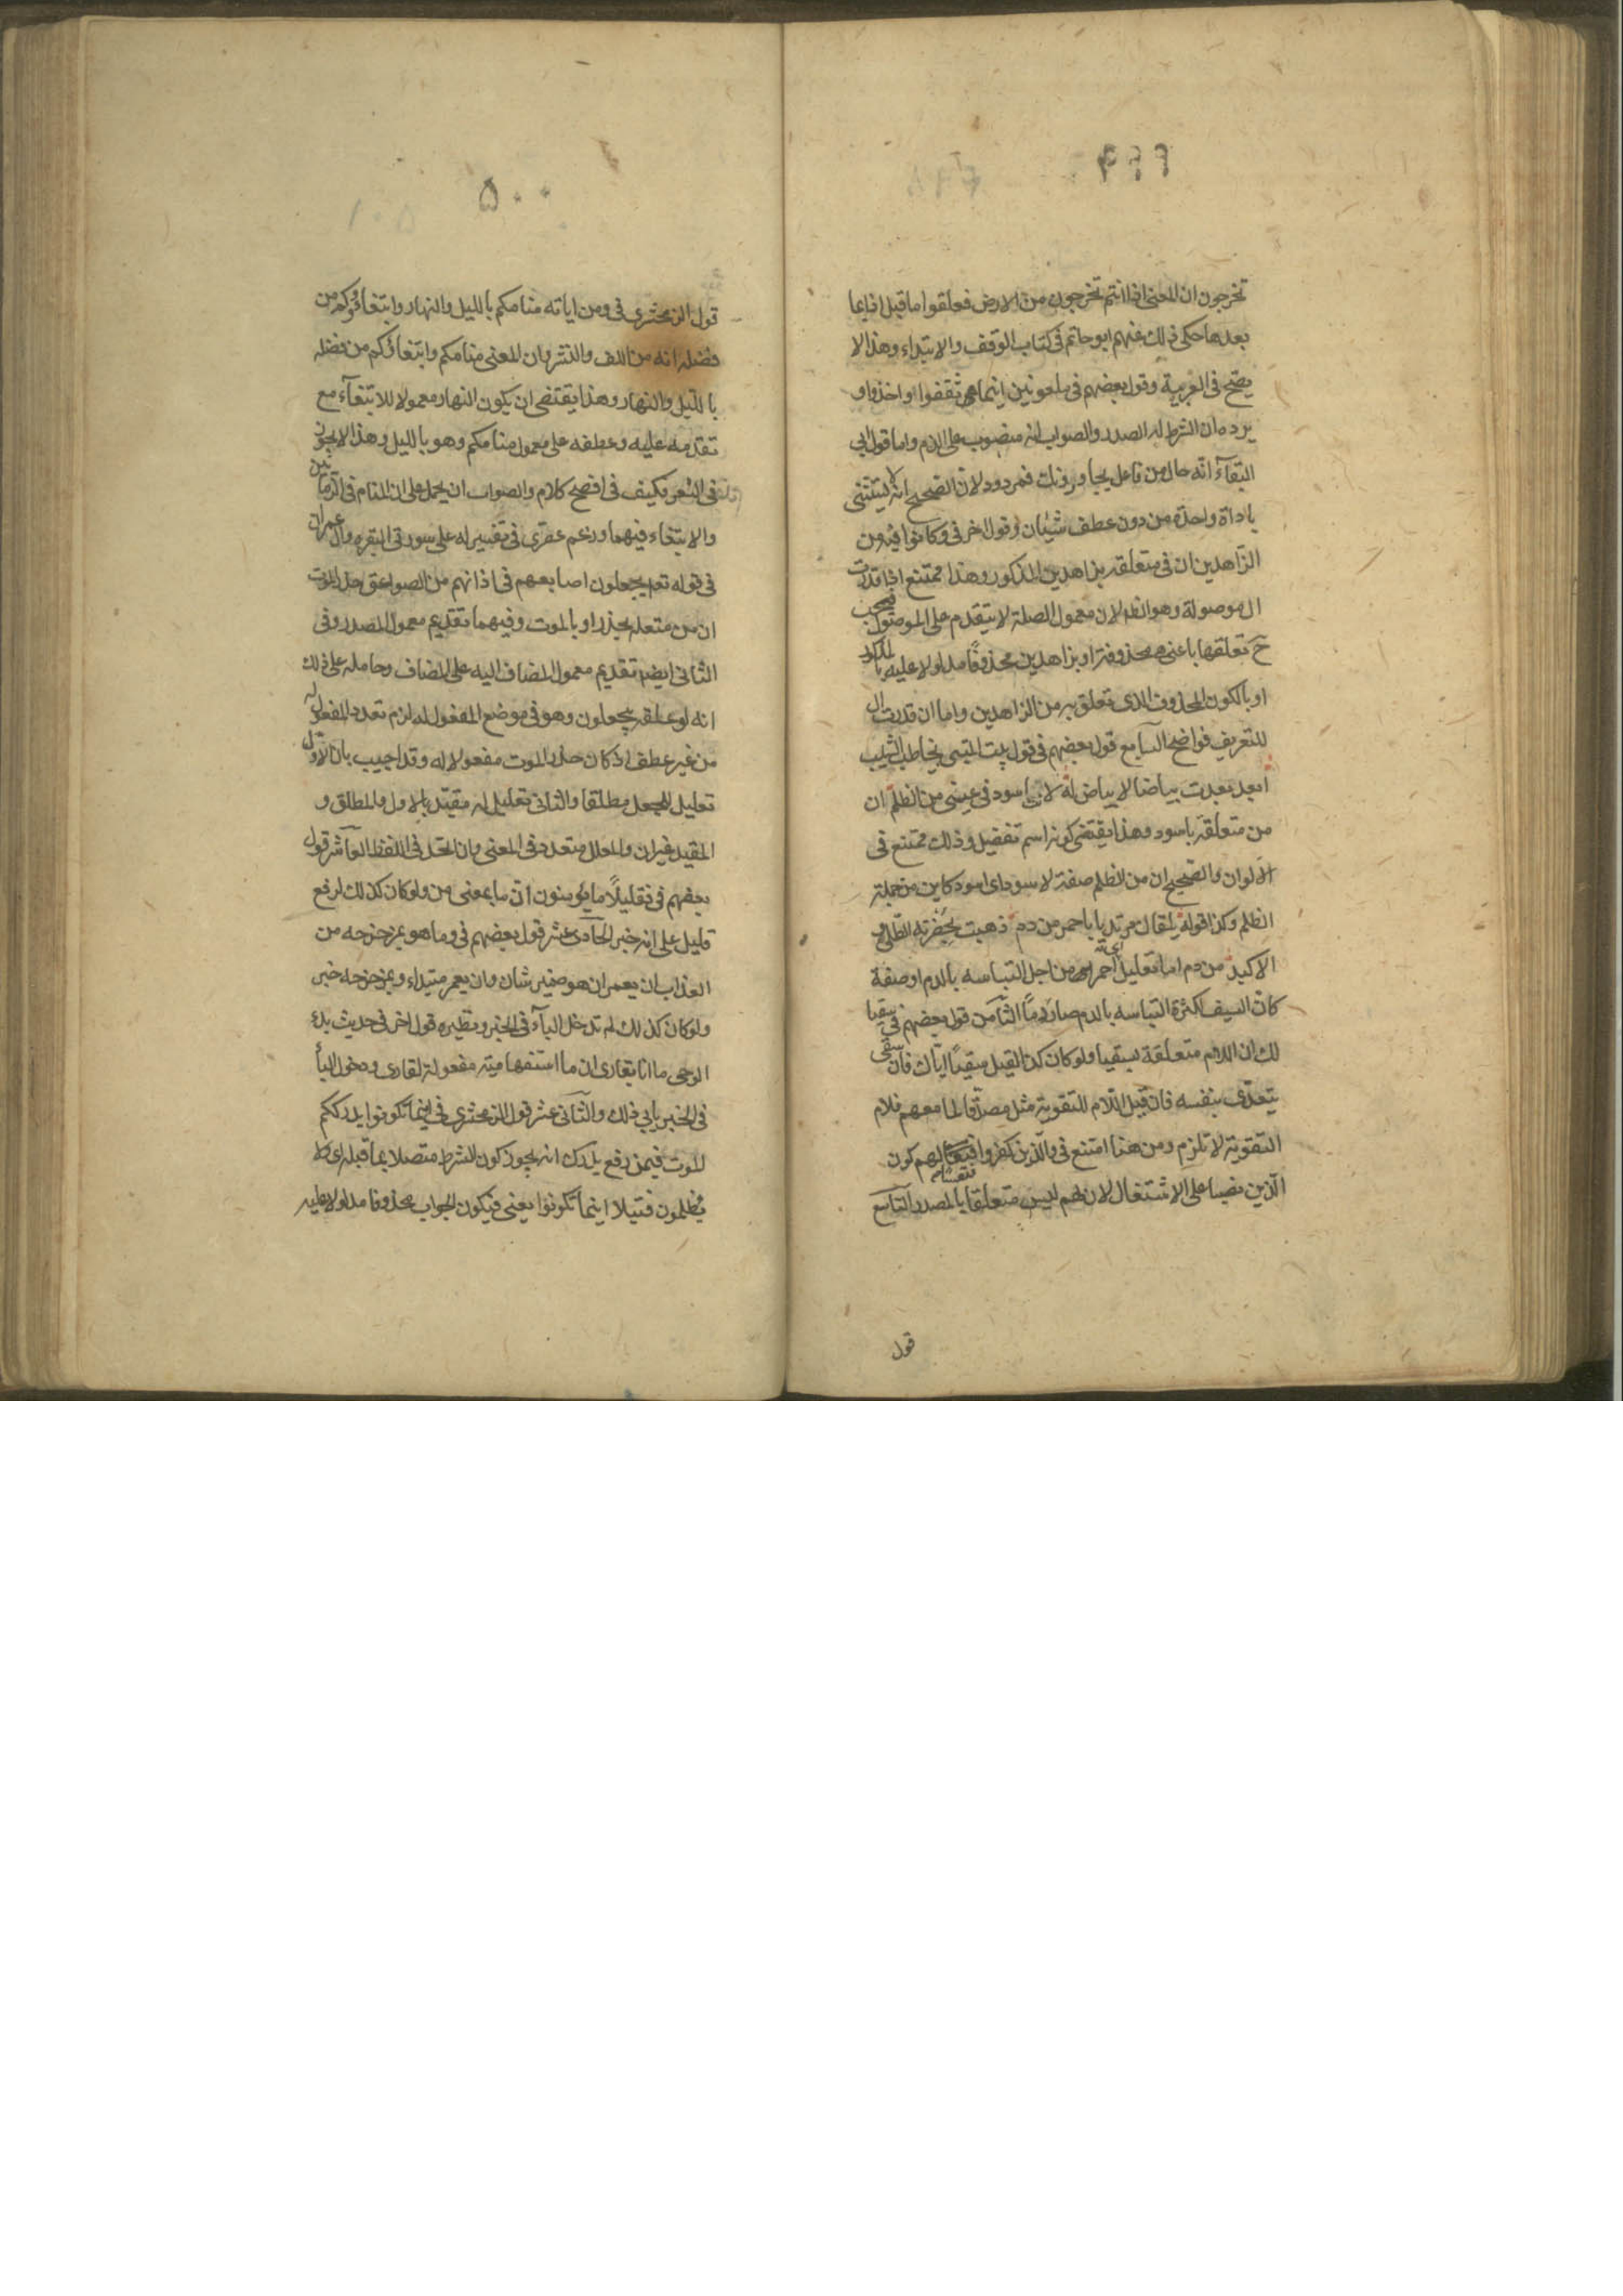 ۴۹۹
تخرجون ان المعنى اذا انتم تخرجون من الارض فعلقوا ما قبل اذا بما
بعدها حكى ذلك عنهم ابو حاتم فى كتاب الوقف والابتداء وهذا لا
يصح فى العربية وقول بعضهم فى ملعونين اينما ثقفوا اخذوا و
يرده ان الشرط له الصدر والصواب انه منصوب على الذم واما قول ابى
البقآء انه حال من فاعل يجاورونك فمردود لان الصحيح انه لا يستثنى
باداة واحدة من دون عطف شيئان وقول اخر فى وكانوا فيه من
الزاهدين ان فى متعلقه بزاهدين المذكور وهذا ممتنع اذا قدرت
ال موصولة وهو الظ لان معمول الصلة لا يتقدم على الموصول فيجب
ح تعلقها باعنى محذوفة او بزاهدين محذوفا مدلولا عليه بالمذكور
او بالكون المحذوف الذى تعلق به من الزاهدين واما ان قدرت ال
للتعريف فواضح السابع قول بعضهم فى قول بيت المتنبى يخاطب الشيب
ابعد بعدت بياضا لا بياض له لانت اسود فى عينى من الظلم ان
من متعلقة باسود وهذا يقتضى كونه اسم تفضيل وذلك ممتنع فى
الالوان والصحيح ان من الظلم صفة لاسود اى اسود كاين من جملة
الظلم وكذا قوله يلقاك مرتديا باحمر من دم ذهبت بخضرته الطلى و
الاكبد من دم اما تعليل اى احمر من اجل التباسه بالدم او صفة
كان السيف لكثرة التباسه بالدم صار دما الثامن قول بعضهم فى سقيا
لك ان اللام متعلقة بسقيا ولو كان كذا لقيل سقيا اياك فان سقى
يتعدى بنفسه فان قيل اللام للتقوية مثل مصدقا لما معهم فلام
التقوية لا تلزم ومن هنا امتنع فى والذين كفروا فتعسا لهم كون
الذين نصبا على الاشتغال لان لهم ليس متعلقا بالمصدر التاسع
قول
۵۰۰
قول الزمخشرى فى ومن اياته منامكم بالليل والنهار وابتغاؤكم من
فضله انه من اللف والنشر وان المعنى منامكم وابتغاؤكم من فضله
بالليل والنهار وهذا يقتضى ان يكون النهار معمولا للابتغآء مع
تقدمه عليه وعطفه على معمول منامكم وهو بالليل وهذا لا يجوز
فى الشعر فكيف فى افصح كلام والصواب ان يحمل على ان المنام فى الزمانين
والابتغاء فيهما وزعم عصرى فى تفسير له على سورتى البقره وال عمران
فى قوله تعم يجعلون اصابعهم فى اذانهم من الصواعق حذر الموت
ان من متعلقه بحذر او بالموت وفيهما تقديم معمول المصدر وفى
الثانى ايضم تقديم معمول المضاف اليه على المضاف وحامله على ذلك
انه لو علقه بيجعلون وهو فى موضع المفعول له لزم تعدد المفعول له
من غير عطف اذ كان حذر الموت مفعولا له وقد اجيب بان الاول
تعليل للجعل مطلقا والثانى تعليل له مقيد بالاول والمطلق و
المقيد غيران والمعلل متعدد فى المعنى وان اتحد فى اللفظ العآشر قول
بعضهم فى فقليلاً ما يؤمنون ان ما بمعنى من ولو كان كذلك لرفع
قليل على انه خبر الحآدى عشر قول بعضهم فى وما هو بمزحزحه من
العذاب ان يعمر ان هو ضمير شان وان يعمر مبتداء وبمزحزحه خبر
ولو كان كذلك لم تدخل البآء فى الخبر ونظيره قول اخر فى حديث بدء
الوحى ما انا بقارى ان ما استفهامية مفعولة لقارى ودخول البأ
فى الخبر يابى ذلك والثآنى عشر قول الزمخشرى فى اينما تكونوا يدرككم
الموت فيمن رفع يدرك انه يجوز كون الشرط متصلا بما قبله اى لا
يظلمون فتيلا اينما تكونوا يعنى فيكون الجواب محذوفا مدلولا عليه